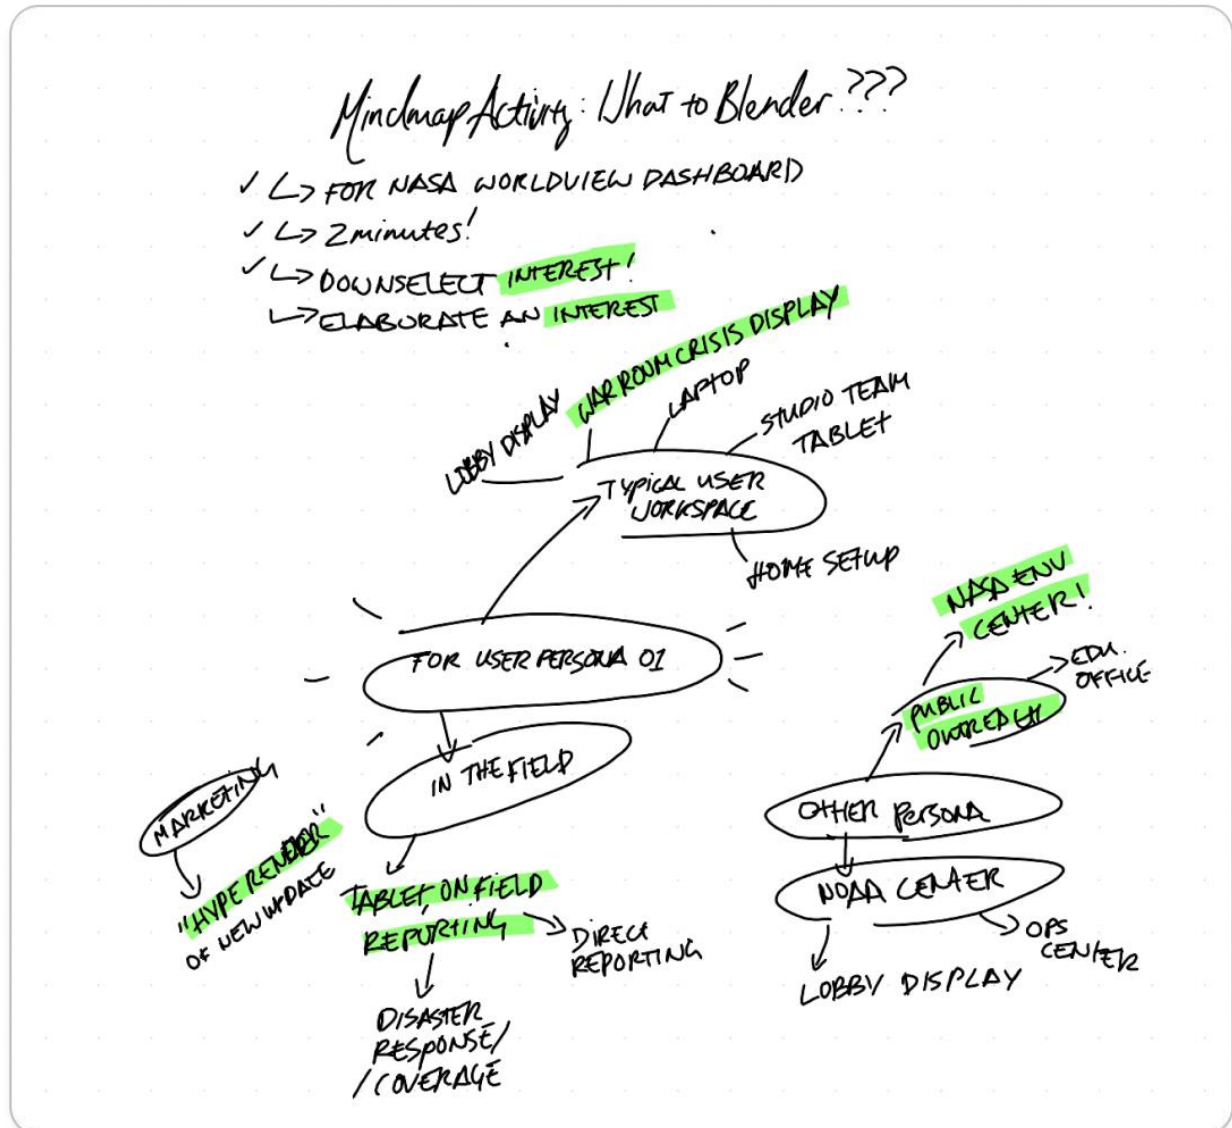 Mindmap Activity: What to Blender???
✓ ↳ FOR NASA WORLDVIEW DASHBOARD
✓ ↳ 2 minutes!
✓ ↳ DOWNSELECT INTEREST!
↳ ELABORATE AN INTEREST
LOBBY DISPLAY
WAR ROOM CRISIS DISPLAY
LAPTOP
STUDIO TEAM
TABLET
TYPICAL USER
WORKSPACE
HOME SETUP
FOR USER PERSONA 01
IN THE FIELD
TABLET, ON FIELD
REPORTING
DIRECT
REPORTING
DISASTER
RESPONSE/
/COVERAGE
MARKETING
"HYPE RENDER"
OF NEW UPDATE
NASA ENV
CENTER!
EDU.
OFFICE
PUBLIC
OUTREACH
OTHER PERSONA
NOAA CENTER
OPS
CENTER
LOBBY DISPLAY